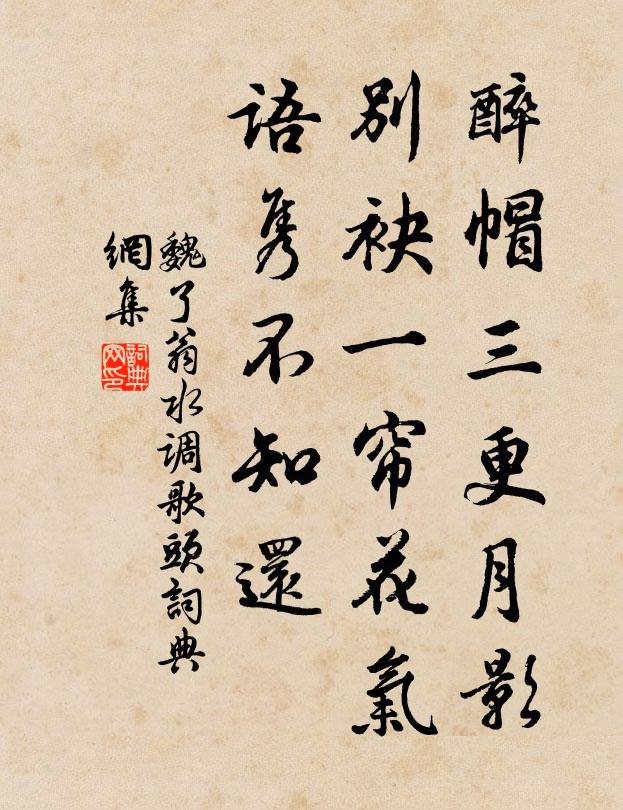 醉帽三更月影
別袂一帘花氣
語隽不知還
魏了翁水调歌頭詞典
網集
詞典
网印